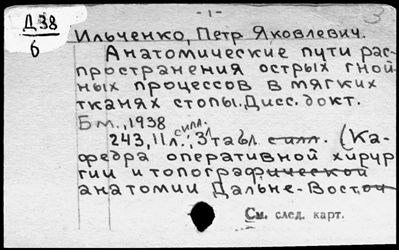 - 1 -
3
Д 38
6
Ильченко, Петр Яковлевич.
Анатомические пути рас-
пространения острых гной-
ных процессов в мягких
тканях стопы. Дисс. докт.
Б м., 1938
243, 11 л.; 3 табл. силл. (Ка-
федра оперативной хирур
гии и топографической
анатомии Дальне-Восточ
См. след. карт.